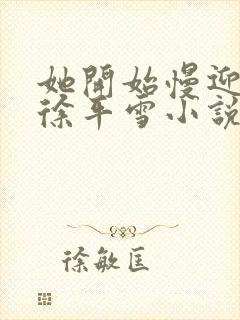 她開始慢迎
徐平雪小說
徐敏匡